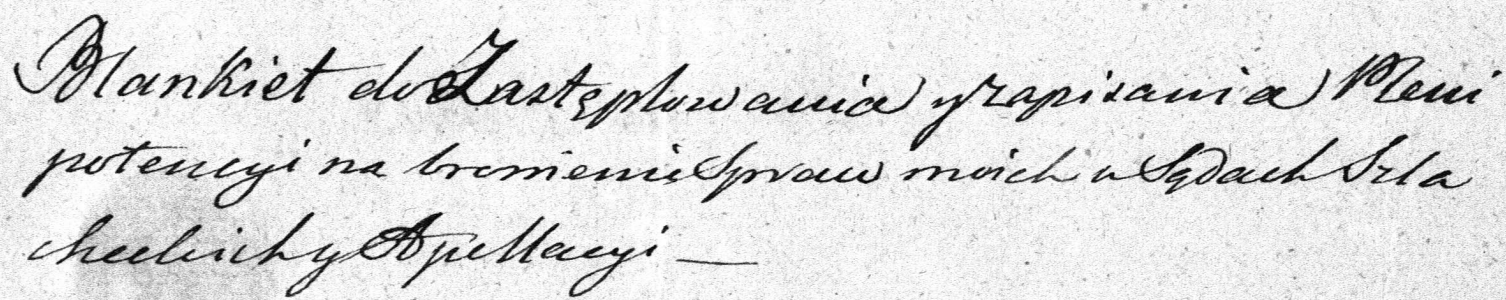 Blankiet do Zastęplowania y zapisania Pleni
potencyi na bronienie Spraw moich w Sądach Szla
checkich y Apellacyi —